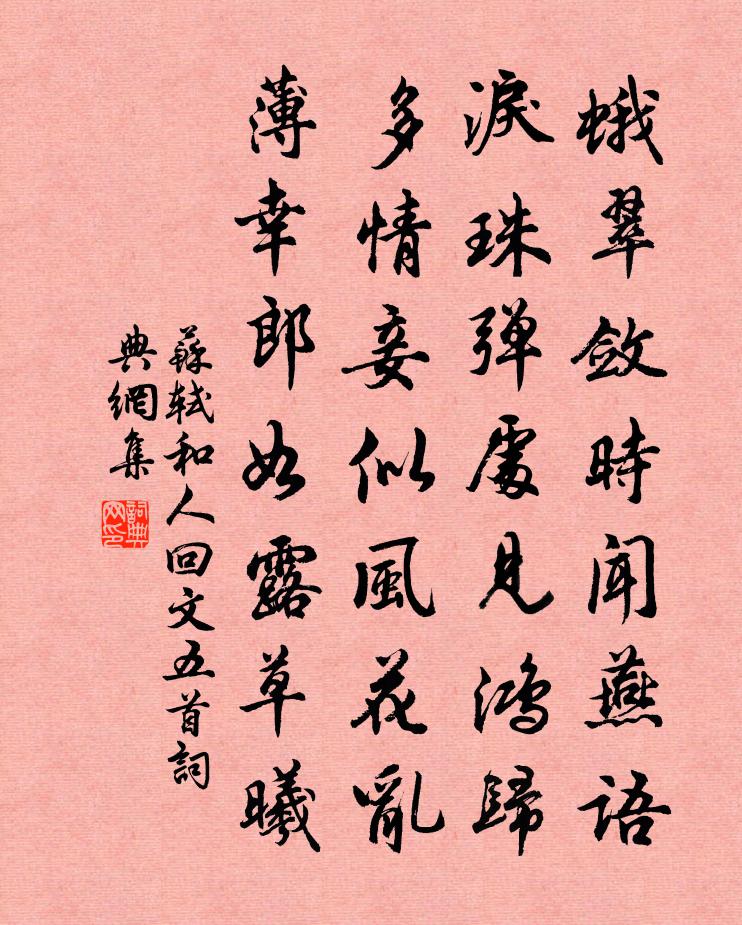 蛾翠斂時聞燕語
淚珠弹處見鸿歸
多情妾似風花亂
薄幸郎如露草曦
蘇軾和人回文五首詞
典網集
詞典網印